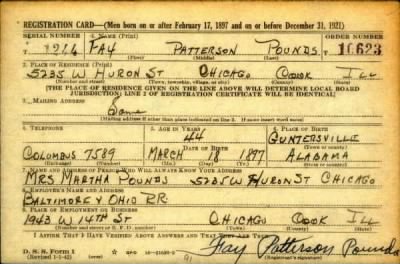 REGISTRATION CARD—(Men born on or after February 17, 1897 and on or before December 31, 1921)
SERIAL NUMBER 1. NAME (Print) ORDER NUMBER
T 1266 FAY PATTERSON POUNDS T 10623
(First) (Middle) (Last)
2. PLACE OF RESIDENCE (Print)
5235 W HURON ST CHICAGO COOK ILL
(Number and street) (Town, township, village, or city) (County) (State)
[THE PLACE OF RESIDENCE GIVEN ON THE LINE ABOVE WILL DETERMINE LOCAL BOARD
JURISDICTION; LINE 2 OF REGISTRATION CERTIFICATE WILL BE IDENTICAL]
3. MAILING ADDRESS
Same
[Mailing address if other than place indicated on line 2. If same insert word same]
4. TELEPHONE 5. AGE IN YEARS 6. PLACE OF BIRTH
44 GUNTERSVILLE
DATE OF BIRTH (Town or county)
COLUMBUS 7589 MARCH 18 1897 ALABAMA
(Exchange) (Number) (Mo.) (Day) (Yr.) (State or country)
7. NAME AND ADDRESS OF PERSON WHO WILL ALWAYS KNOW YOUR ADDRESS
MRS MARTHA POUNDS 5235 W HURON ST CHICAGO
8. EMPLOYER'S NAME AND ADDRESS
BALTIMORE & OHIO RR.
9. PLACE OF EMPLOYMENT OR BUSINESS
1943 W 14TH ST CHICAGO COOK ILL
(Number and street or R. F. D. number) (Town) (County) (State)
I AFFIRM THAT I HAVE VERIFIED ABOVE ANSWERS AND THAT THEY ARE TRUE.
D. S. S. Form 1
(Revised 1-1-42) (over)
Fay Patterson Pounds
(Registrant's signature)